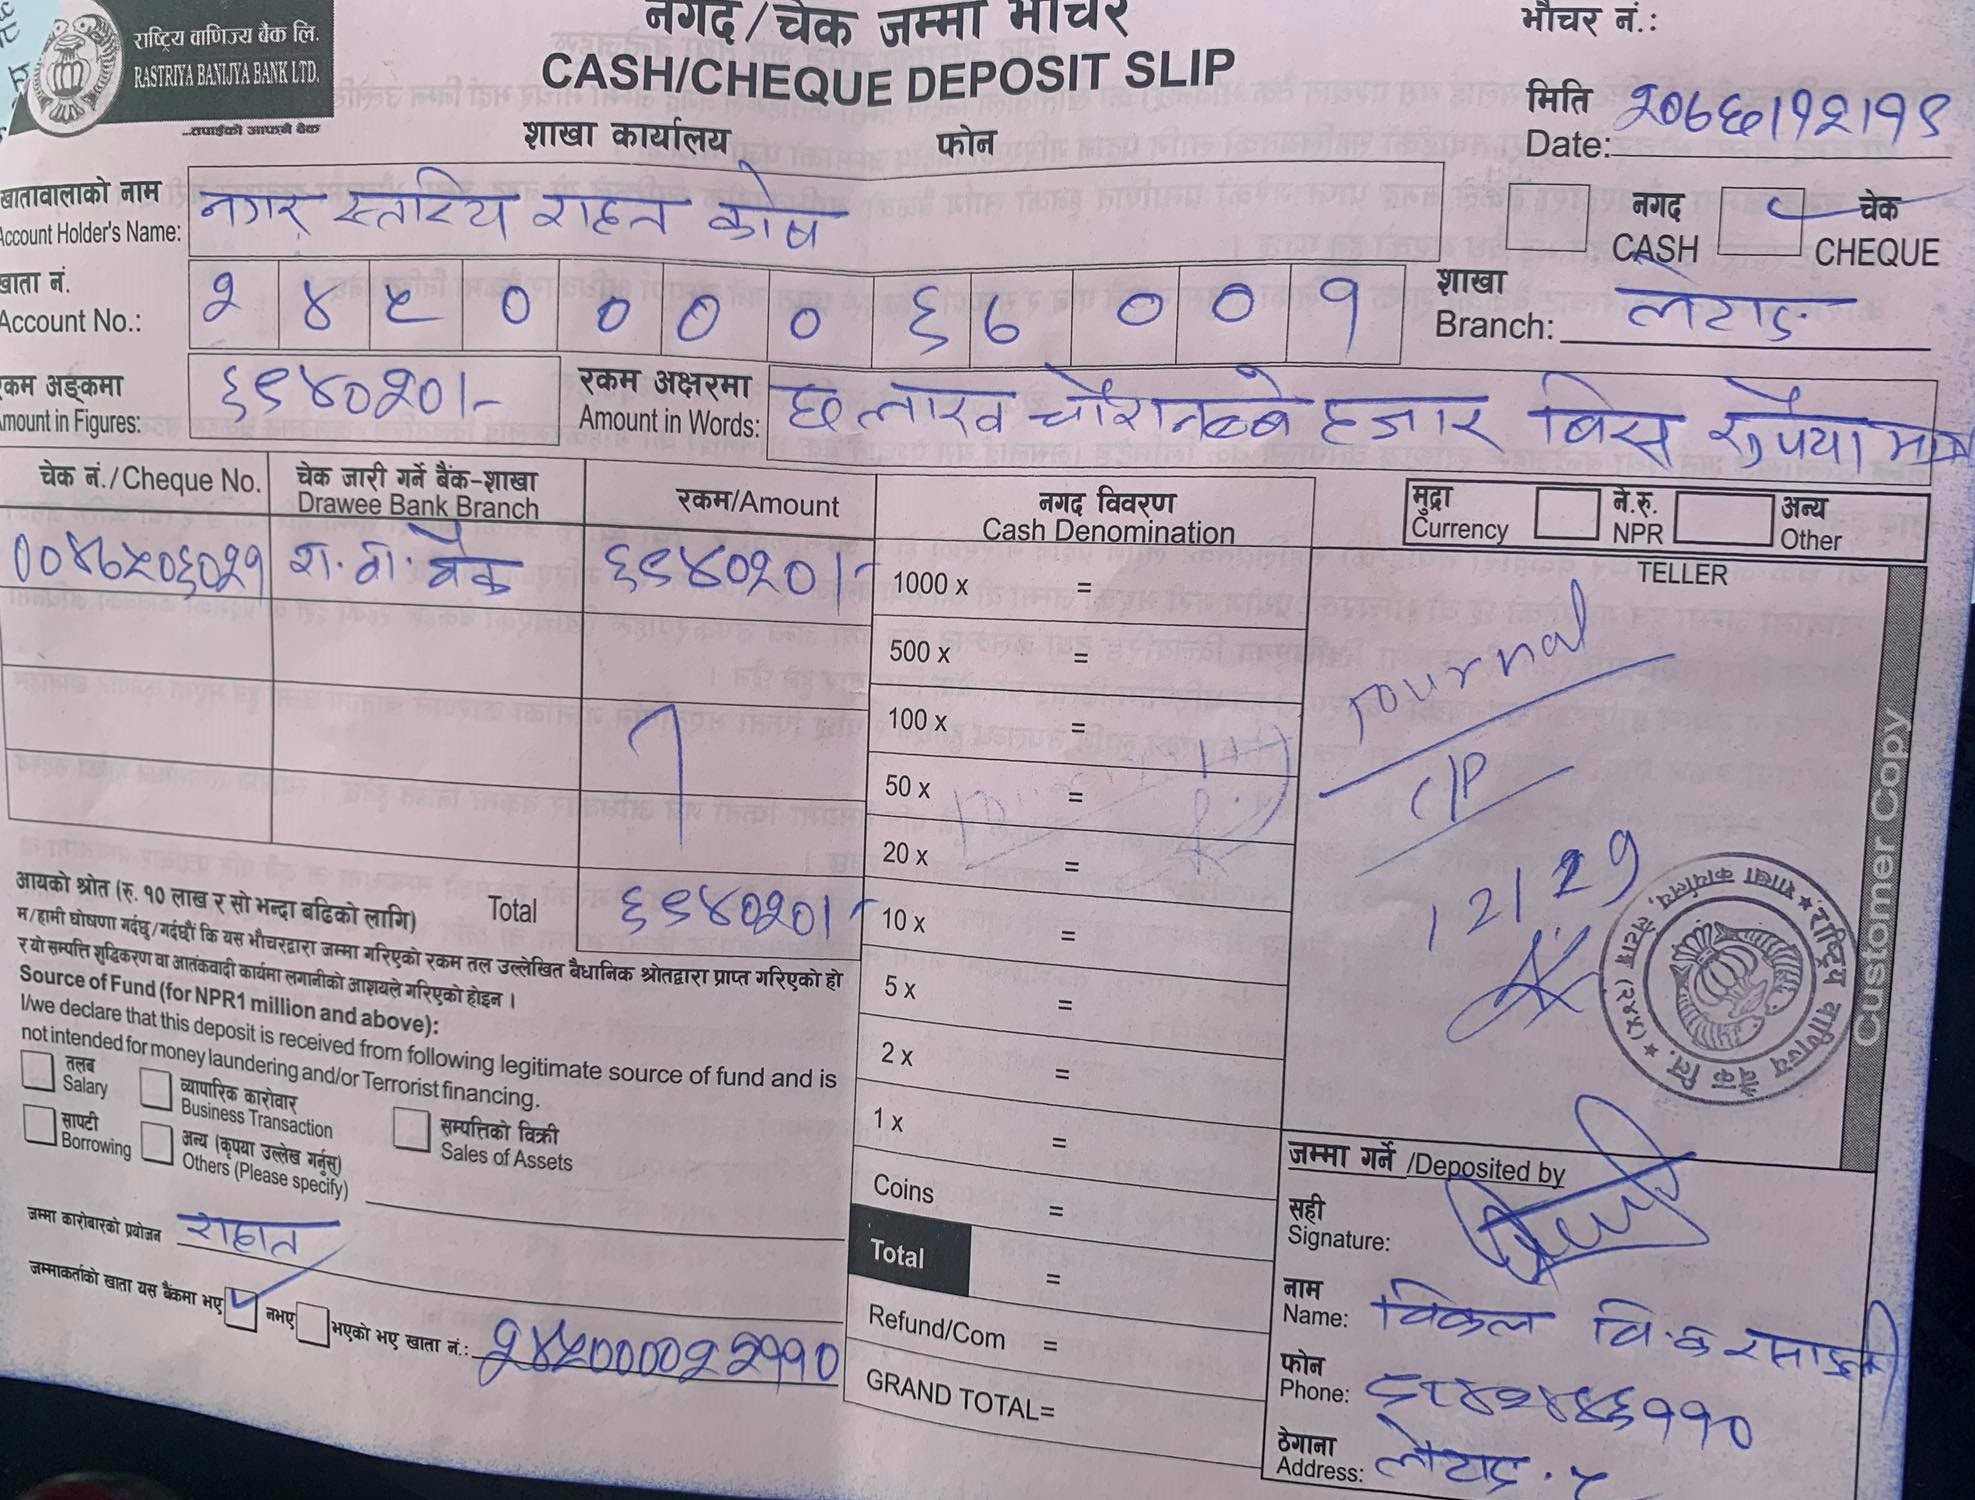 राष्ट्रिय वाणिज्य बैंक लि.
RASTRIYA BANIJYA BANK LTD.
...तपाईंको आफ्नै बैंक
नगद/चेक जम्मा भौचर
CASH/CHEQUE DEPOSIT SLIP
शाखा कार्यालय फोन
भौचर नं.:
मिति
Date: २०७६।१२।१९
खातावालाको नाम
Account Holder's Name: नगर स्तरिय राहत कोष
नगद
CASH
चेक
CHEQUE
खाता नं.
Account No.: २ ४ ५ ० ० ० ० ६ ७ ० ० १
शाखा
Branch: लेटाङ
रकम अङ्कमा
Amount in Figures: ६९४०२०।-
रकम अक्षरमा
Amount in Words: छ लाख चौरानब्बे हजार बिस रुपैया मात्र
चेक नं./Cheque No.
चेक जारी गर्ने बैंक-शाखा
Drawee Bank Branch
रकम/Amount
नगद विवरण
Cash Denomination
मुद्रा
Currency
ने.रु.
NPR
अन्य
Other
रा.वा.बैंक ६९४०२०।-
TELLER
1000 x =
500 x =
100 x =
50 x =
20 x =
10 x =
5 x =
2 x =
1 x =
Coins =
Total =
Refund/Com =
GRAND TOTAL=
Journal
12/29
Customer Copy
राष्ट्रिय वाणिज्य बैंक लि. ★ (२४५) लेटाङ शाखा कार्यालय,
आयको श्रोत (रु. १० लाख र सो भन्दा बढिको लागि)
Total ६९४०२०।-
म/हामी घोषणा गर्दछु/गर्दछौं कि यस भौचरद्वारा जम्मा गरिएको रकम तल उल्लेखित बैधानिक श्रोतद्वारा प्राप्त गरिएको हो
र यो सम्पत्ति शुद्धिकरण वा आतंकवादी कार्यमा लगानीको आशयले गरिएको होइन ।
Source of Fund (for NPR1 million and above):
I/we declare that this deposit is received from following legitimate source of fund and is
not intended for money laundering and/or Terrorist financing.
तलब
Salary
व्यापारिक कारोवार
Business Transaction
सम्पत्तिको विक्री
Sales of Assets
सापटी
Borrowing
अन्य (कृपया उल्लेख गर्नुस्)
Others (Please specify)
जम्मा कारोबारको प्रयोजन राहात
जम्माकर्ताको खाता यस बैंकमा भए नभए भएको भए खाता नं.:
जम्मा गर्ने /Deposited by
सही
Signature:
नाम
Name: विकल वि.क
फोन
Phone:
ठेगाना
Address: